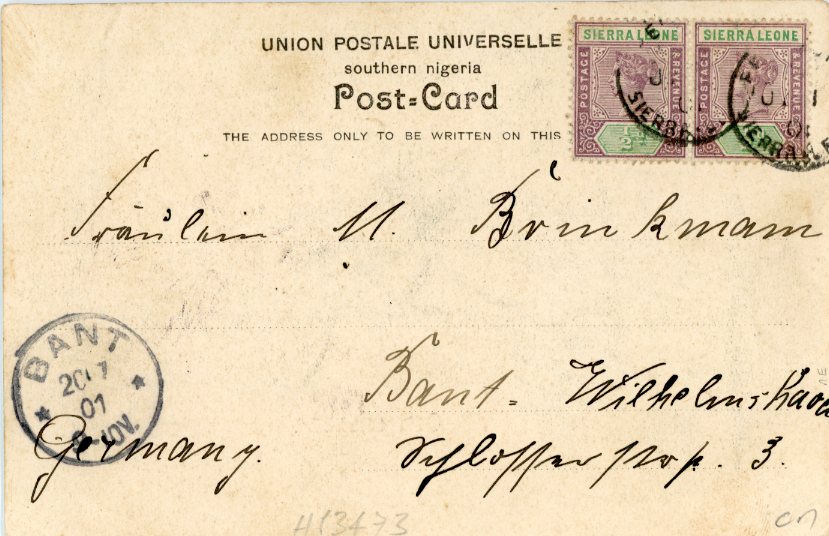 UNION POSTALE UNIVERSELLE
southern nigeria
Post=Card
THE ADDRESS ONLY TO BE WRITTEN ON THIS
SIERRA LEONE
POSTAGE & REVENUE
½
SIERRA LEONE
POSTAGE & REVENUE
SIERRA
SIERRA LE
Fräulein M. Brinkmann
Bant - Wilhelmshave
Schlosserstr. 3.
Germany.
BANT
20 7
01
413473